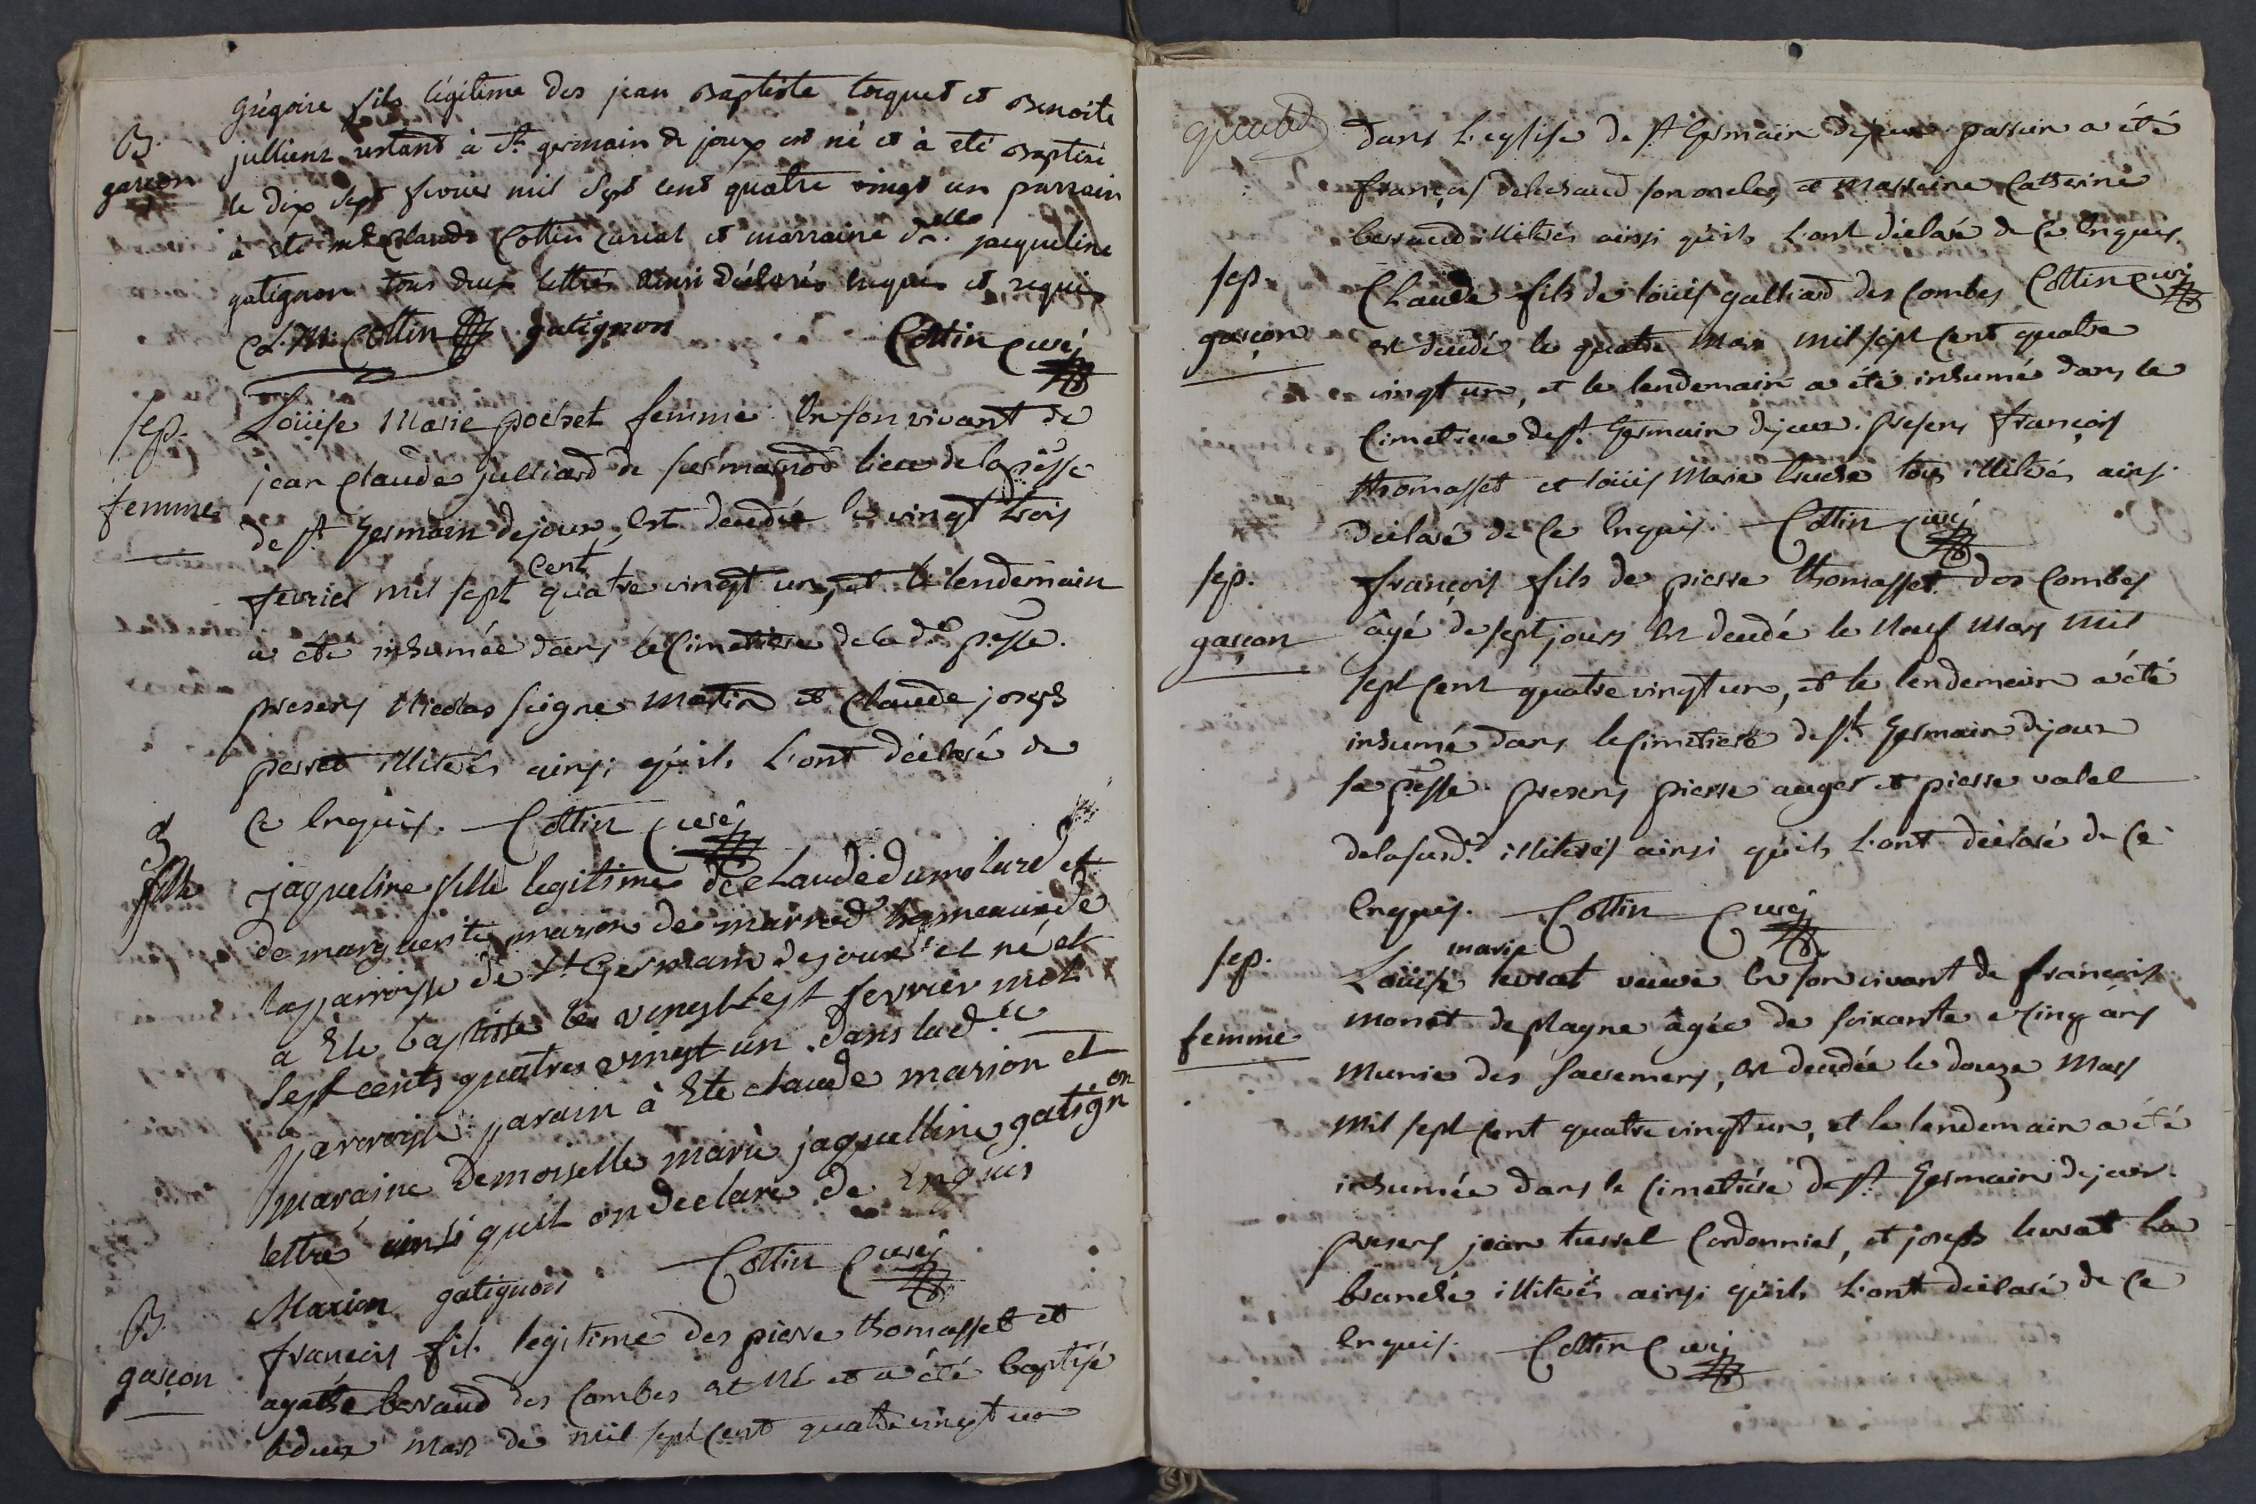 Grégoire fils légitime des jean Baptiste torquet et Benoite
B. julliene restant à St germain de joux est né et à eté Baptisé
garçon le dix sept fevrier mil sept cent quatre vingt un parrain
à eté Claude Cottin curial et marraine dlle jacqueline
gatignon tous deux lettrés ainsi déclarés enquis et requis
C.L.M. Cottin gatignon Cottin curé
sep. Loüise Marie pochet femme En son vivant de
jean claude julliard de lieu de la psse
femme de St Germain dejoux, Est decedée le vingt trois
fevrier mil sept cent quatre vingt un, et le lendemain
a été inhumée dans le Cimetiere de la de psse.
presens Nicolas seigne Martin et Claude joseph
perret illiterés ainsi qu'ils L'ont déclaré de
Ce Enquis. Cottin Curé
B
fille jaqueline fille legitime de claude dumolard et
de marguerite marion de marnod hameaux de
la parroisse de St Germain dejoux et né et
a Ete baptisse le vingt sept fevrier mil
sept cents quatres vingt un dans lad.te
parroisse parain à Ete claude marion et
maraine demoiselle marie jaquelline gatignon
lettré ainsi quil on declare de Enquis
Marion gatignon Cottin Curé
B. francois fils legitime des pierre thomasset et
garçon agathe berraud des Combes est né et a été baptisé
le deux mars de mil sept cent quatre vingt un
dans L'eglise de St Germain dejoux parrain a été
françois son oncle, et Marraine Catherine
berraud illiterés ainsi qu'ils L'ont déclaré de Ce Enquis.
sep. Claude fils de loüis galliard des Combes Cottin Curé
garçon est decedé le quatre Mars mil sept cent quatre
vingt un, et le lendemain a été inhumé dans le
Cimetiere de St Germain dejoux. presens françois
thomasset et loüis Marie tous illiterés ainsi
déclaré de Ce Enquis. Cottin Curé
sep. françois fils de pierre thomasset des Combes
garçon âgé de sept jours Est decedé le Neuf Mars mil
sept Cent quatre vingt un, et le lendemain a été
inhumé dans le Cimetiere de St Germain dejoux
sa psse. presens pierre auger et pierre valet
de la susd.e illiterés ainsi qu'ils L'ont déclaré de Ce
Enquis. Cottin Curé
sep. Loüise marie levrat veuve En son vivant de françois
femme monet de plagne âgée de soixante et cinq ans
Munie des sacremens, est decedée le douze Mars
mil sept cent quatre vingt un, et le lendemain a été
inhumée dans le Cimetiére de St Germain dejoux.
presens jean tussel Cordonnier, et joseph levrat La
branche illiterés ainsi qu'ils L'ont déclaré de Ce
Enquis. Cottin Curé